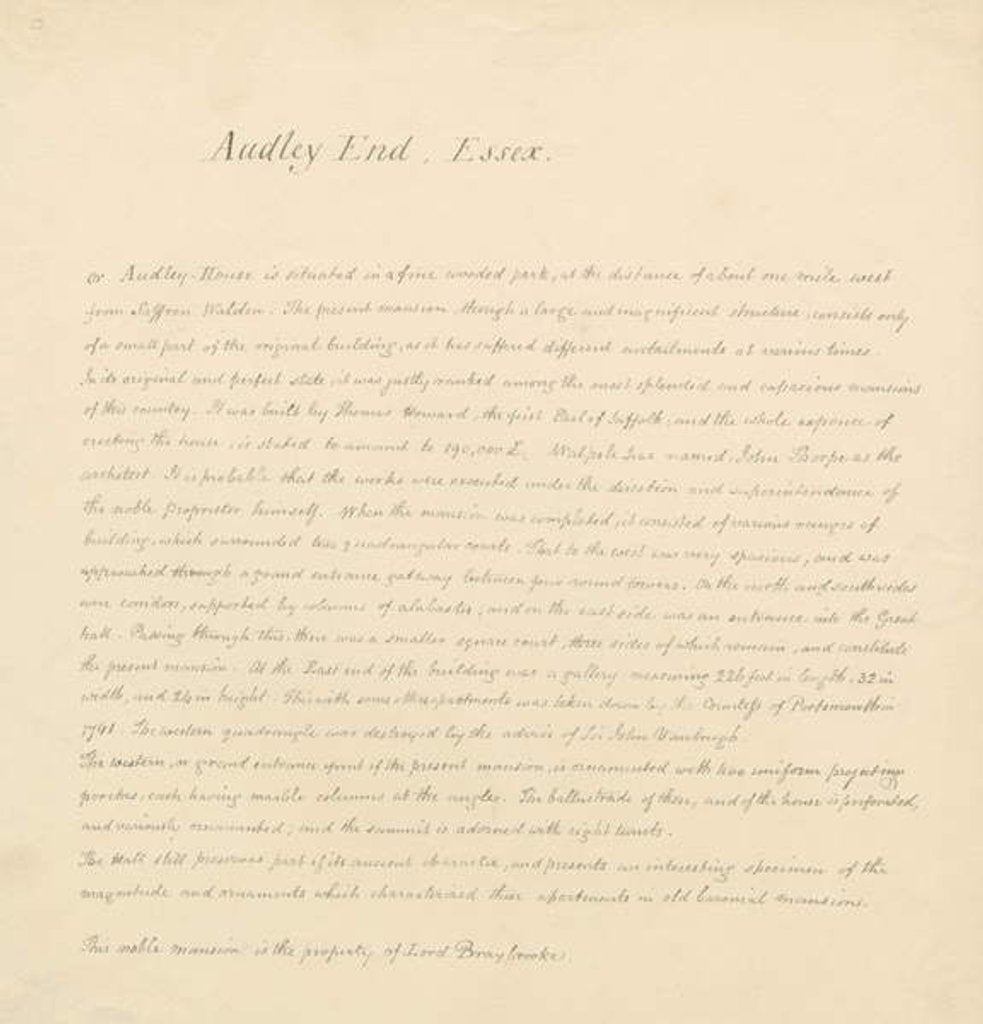 Audley End, Essex.
or Audley-House is situated in a fine wooded park, at the distance of about one mile west
from Saffron Walden. The present mansion though a large and magnificent structure, consists only
of a small part of the original building, as it has suffered different curtailments at various times.
In its original and perfect state, it was justly ranked among the most splendid and capacious mansions
of this country. It was built by Thomas Howard, the first Earl of Suffolk, and the whole expence of
erecting the house, is stated to amount to 190,000 £. Walpole has named John Thorpe as the
architect. It is probable that the works were executed under the direction and superintendance of
the noble proprietor himself. When the mansion was completed, it consisted of various ranges of
building, which surrounded two quadrangular courts. That to the west was very spacious, and was
approached through a grand entrance gateway between four round towers. On the north and south sides
were supported by columns of alabaster, and on the east side was an entrance into the Great
hall. Passing through this, there was a smaller square court, three sides of which remain, and constitute
the present mansion. At the East end of the building was a gallery measuring 226 feet in length, 32 in
width, and 24 in height. This with some was taken down by the Countess of Portsmouth in
The western quadrangle was destroyed by the advice of Sir John Vanbrugh
The western, or grand entrance front of the present mansion, is ornamented with two uniform, projecting
porches, each having marble columns at the angles. The ballustrade of these, and of the house is perforated,
and variously ornamented; and the summit is adorned with eight
The Hall still preserves part of its ancient character, and presents an interesting specimen of the
magnitude and ornaments which characterised these apartments in old baronial mansions.
This noble mansion is the property of Lord Braybrooke.